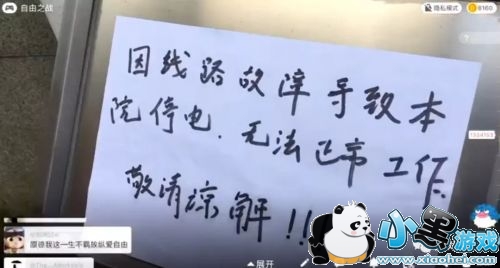 自由之战
隐私模式
8160
因线路故障导致本
院停电.无法正常工作
敬请谅解!!
原谅我这一生不羁放纵爱自由
展开
小黑游戏
www.xiaohei.com